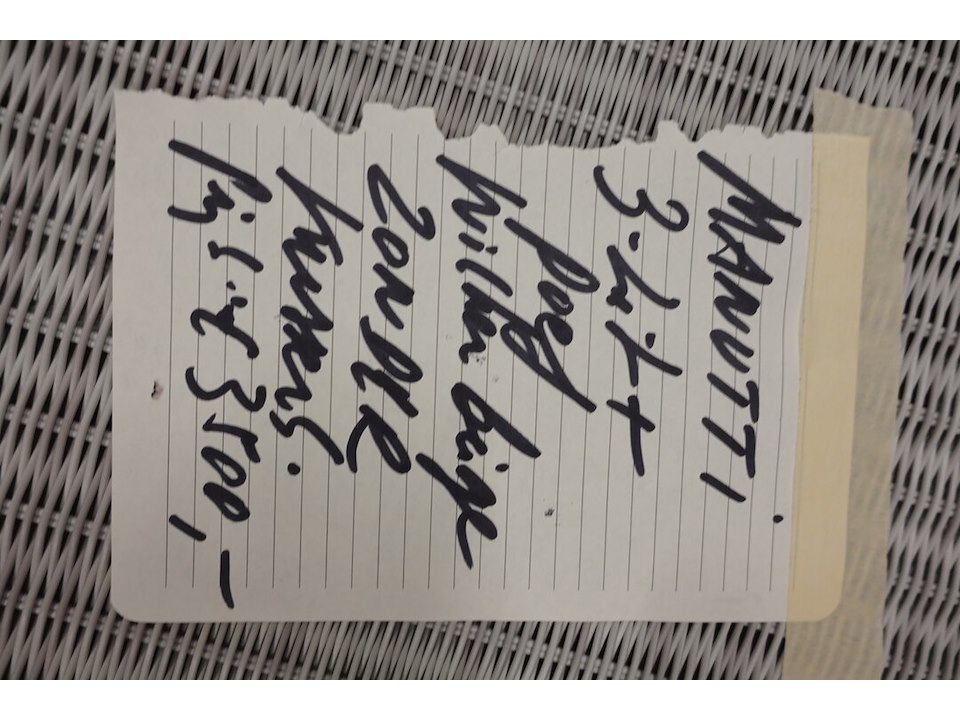 MANUTTI
3-zit +
poeg
wilkn beige
ZONDER
kussens.
prijs: € 3500,-